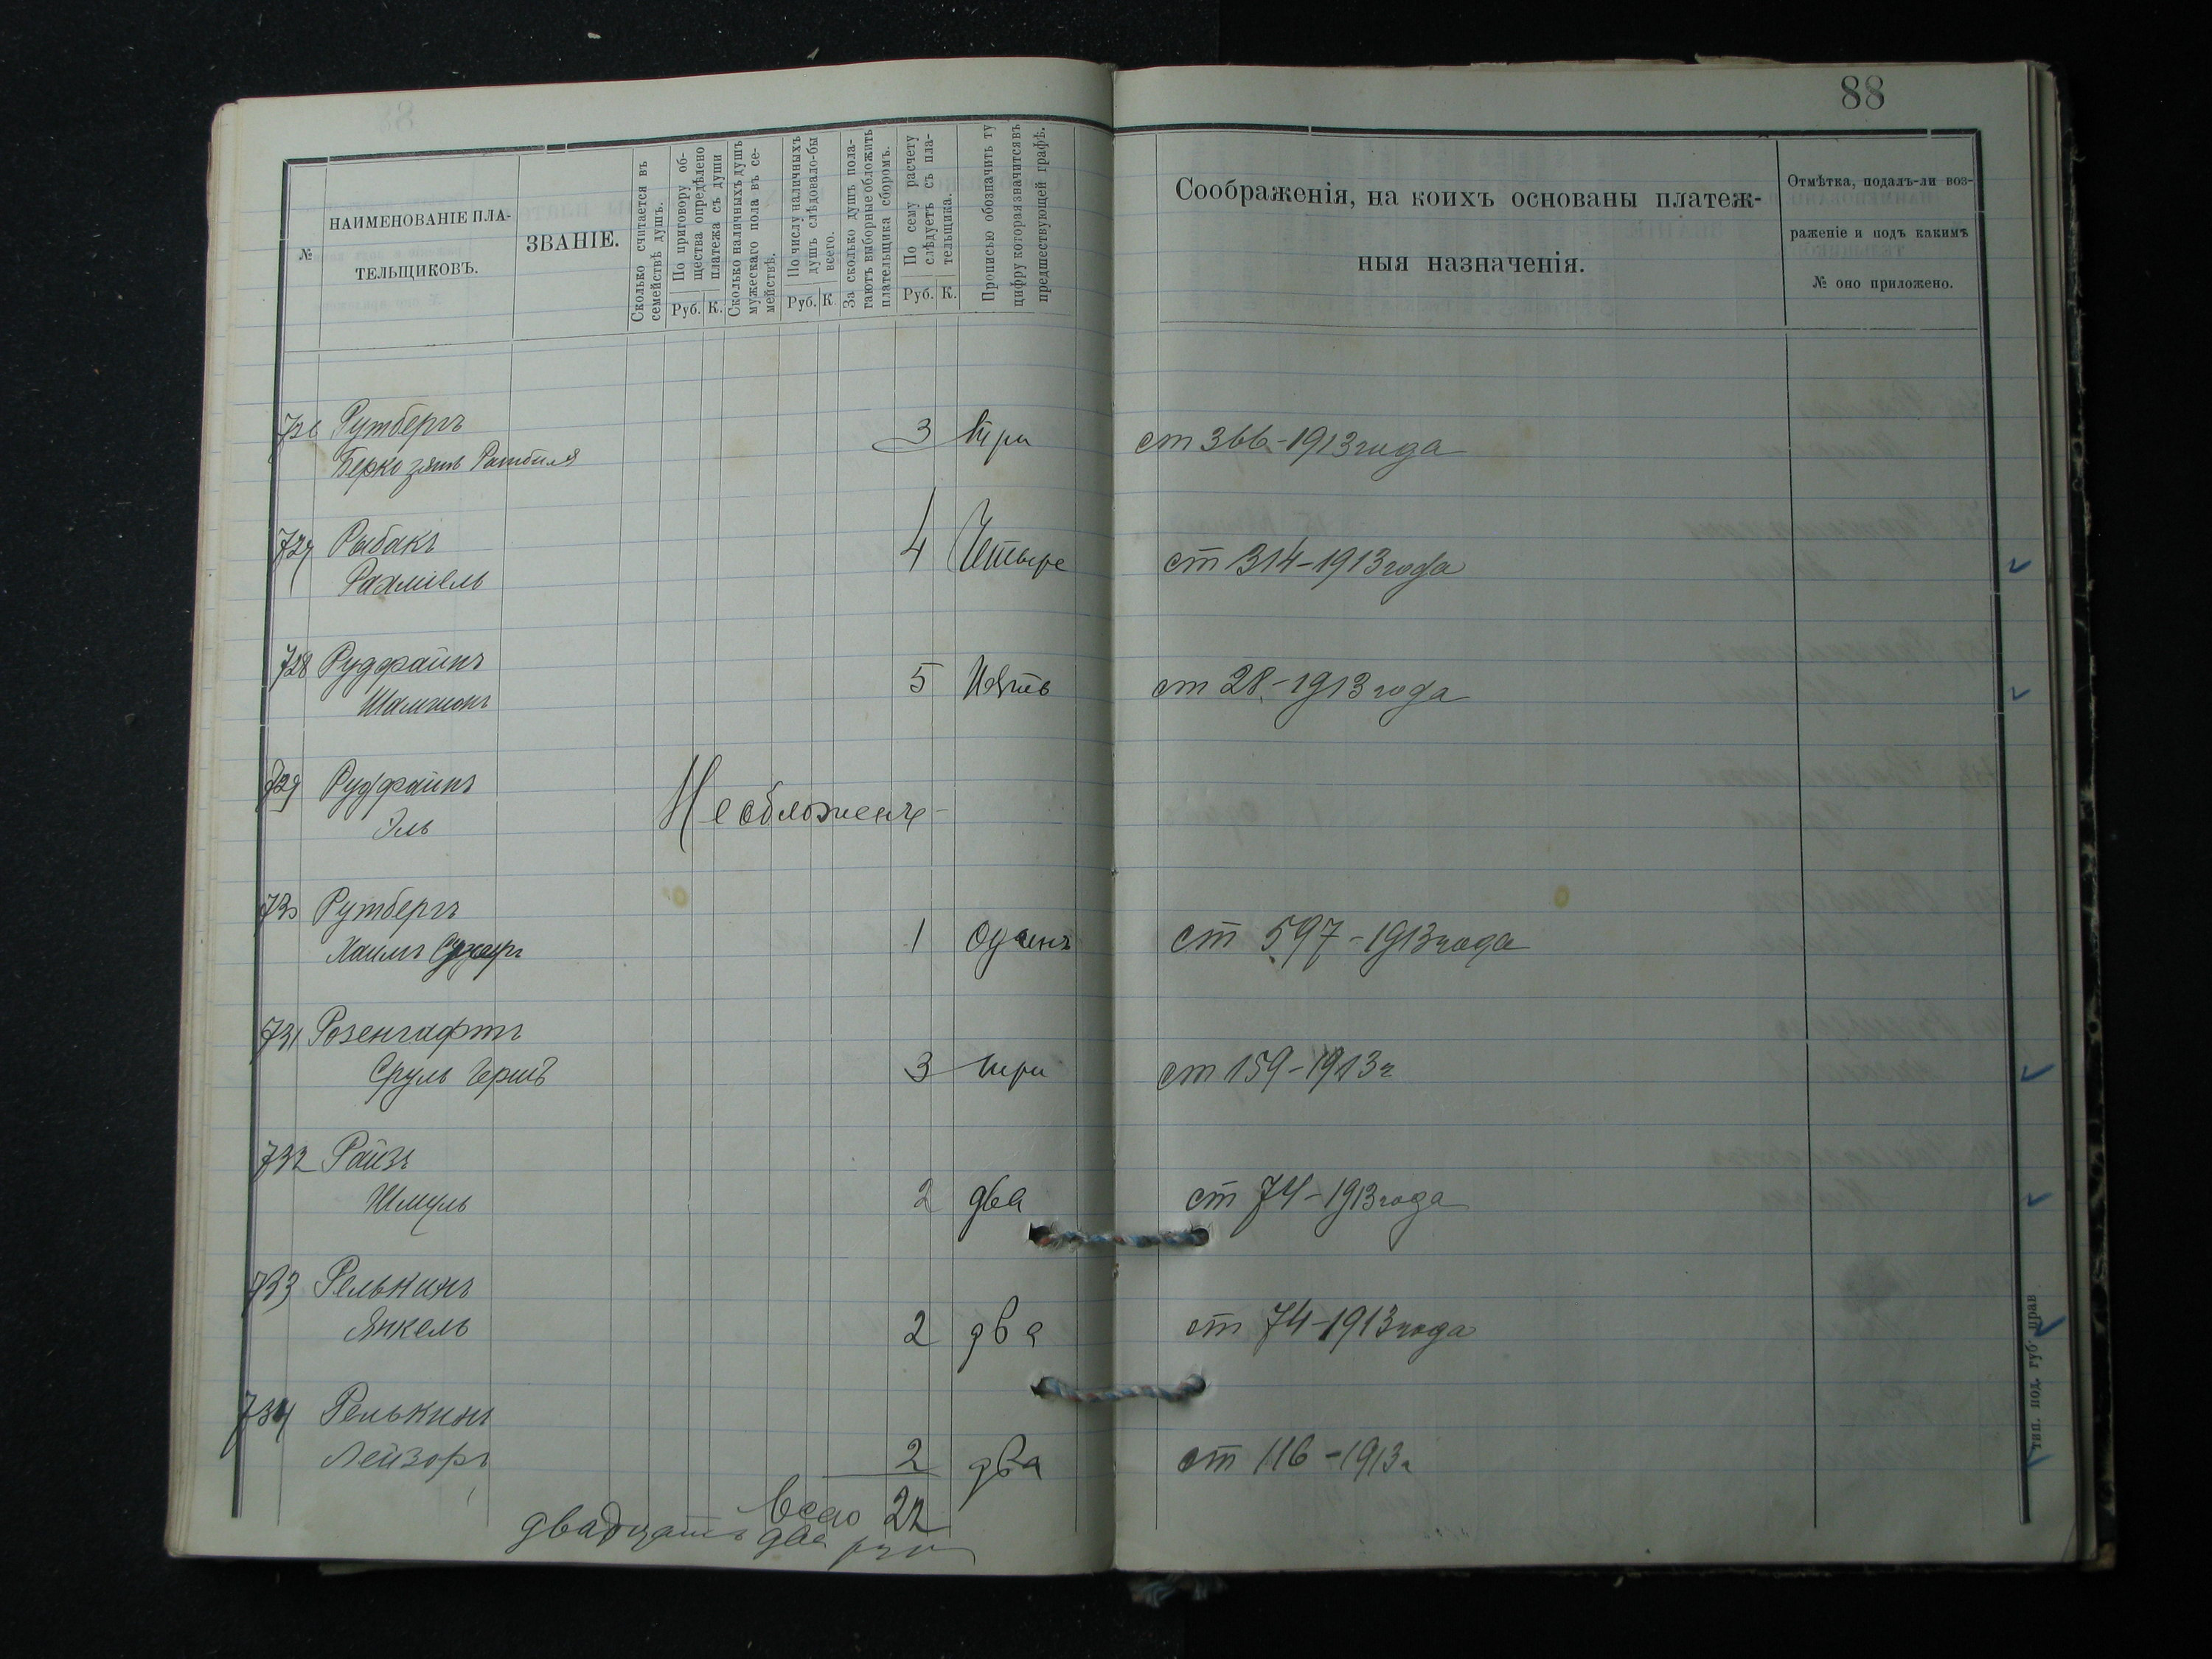 88
№
НАИМЕНОВАНІЕ ПЛА-
ТЕЛЬЩИКОВЪ.
ЗВАНІЕ.
Сколько считается въ
семействѣ душъ.
По приговору об-
щества опредѣлено
платежа съ души
Руб. К.
Сколько наличныхъ душъ
мужескаго пола въ се-
мействѣ.
По числу наличныхъ
душъ слѣдовало-бы
всего.
Руб. К.
За сколько душъ пола-
гаютъ выборные обложить
плательщика сборомъ.
По сему расчету
слѣдуетъ съ пла-
тельщика.
Руб. К.
Прописью обозначить ту
цифру которая значится въ
предшествующей графѣ.
Соображенія, на коихъ основаны платеж-
ныя назначенія.
Отмѣтка, подалъ-ли воз-
раженіе и подъ какимъ
№ оно приложено.
726 Рутбергъ
Берко зять 3 три ст 366-1913 года
727 Рыбакъ
Рахмиель 4 Четыре ст 314-1913 года
728 Рудфайнъ
Шамшонъ 5 Пять ст 28-1913 года
729 Рудфайнъ
Эль Необложенъ
730 Рутбергъ
Хаимъ 1 Одинъ ст 597-1913 года
731 Розенгафтъ
Сруль Гершъ 3 три ст 159-1913 г
732 Райзъ
Шмуль 2 два ст 74-1913 года
733 Релькинъ
Янкель 2 два ст 74-1913 года
734 Релькинъ
Лейзоръ 2 два ст 116-1913 г
всего 22
двадцать два руб
тип. под. губ. прав